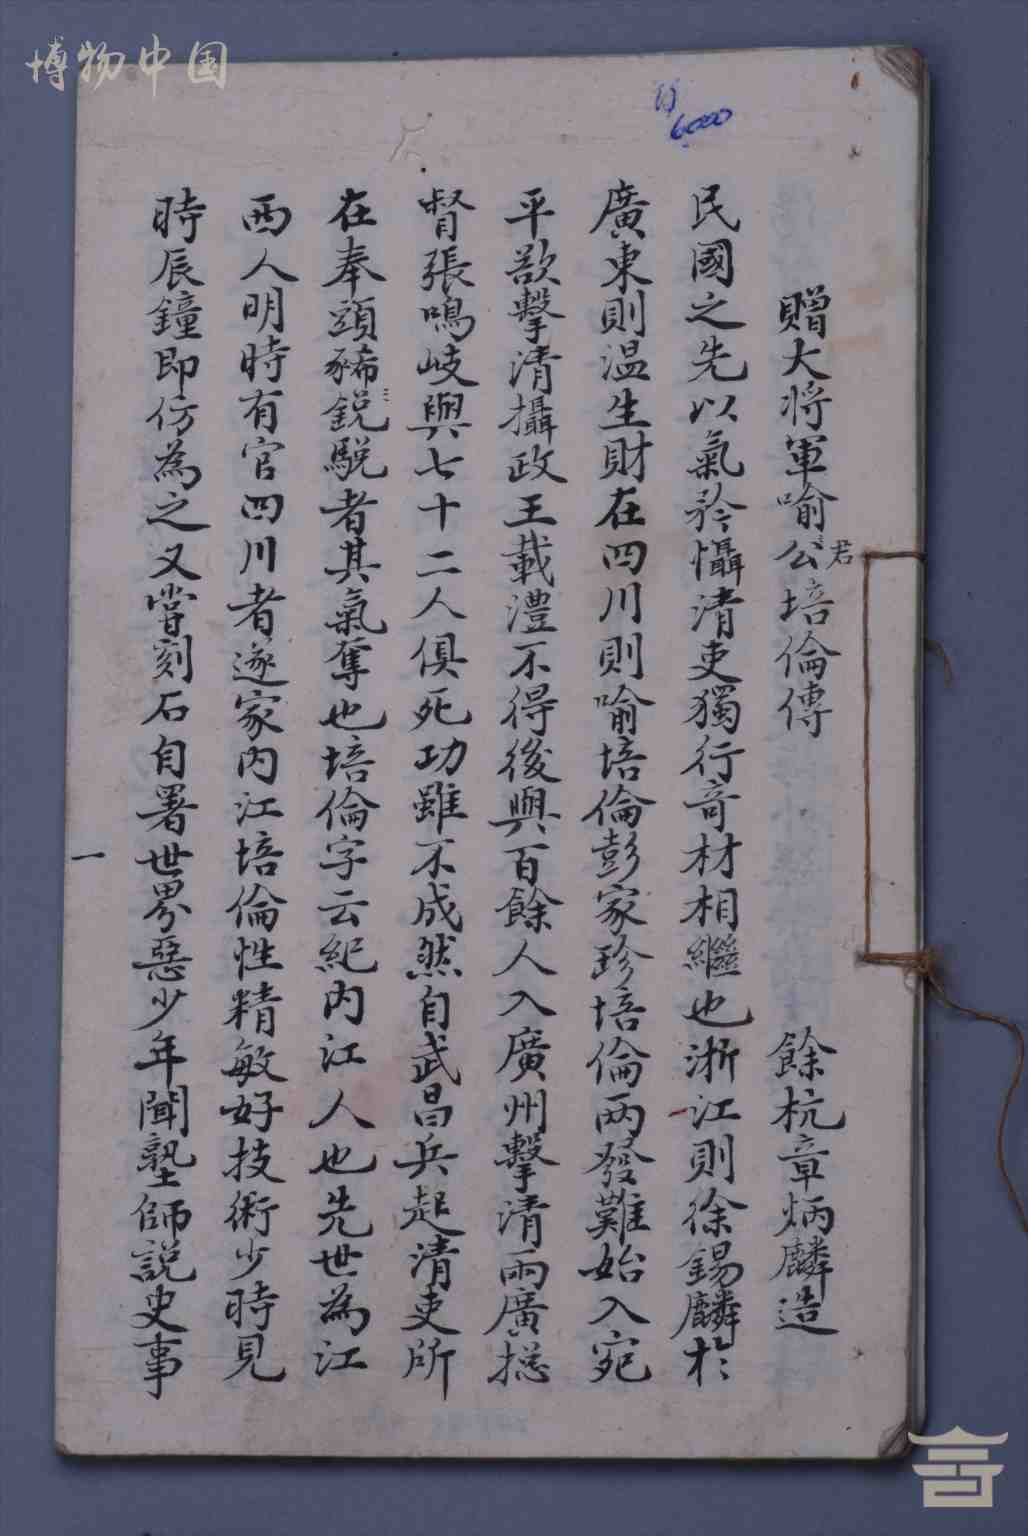 博物中国
6000
贈大将軍喻公培倫傳 餘杭章炳麟造
君
民國之先以氣矜懾清吏獨行奇材相繼也浙江則徐錫麟於
廣東則温生財在四川則喻培倫彭家珍培倫兩發難始入宛
平欲擊清攝政王載灃不得後與百餘人入廣州擊清兩廣揔
督張鳴岐與七十二人俱死功雖不成然自武昌兵起清吏所
在奉頭豨鋭駾者其氣奪也培倫字云紀内江人也先世為江
西人明時有官四川者遂家内江培倫性精敏好技術少時見
時辰鐘即仿為之又嘗刻石自署世界惡少年聞塾師説史事
一